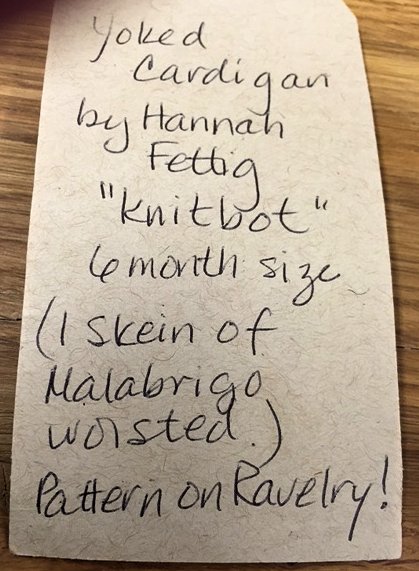 Yoked
Cardigan
by Hannah
Fettig
"Knitbot"
6 month size
(1 Skein of
Malabrigo
worsted.)
Pattern on Ravelry!